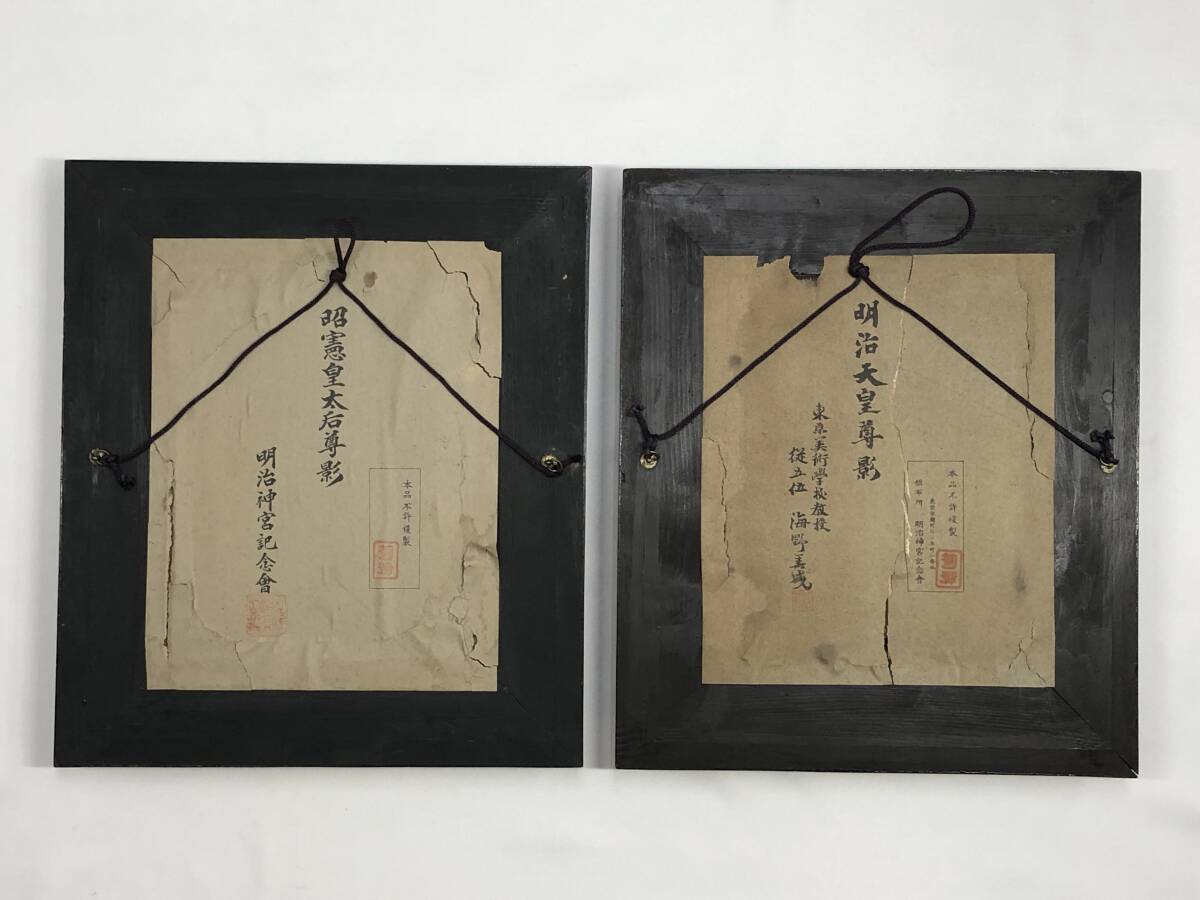 昭憲皇太后尊影
明治神宮記念會
本品不許複製
明治天皇尊影
東京美術學校教授
従五位 海野美盛
本品不許複製
頒布所 明治神宮記念會